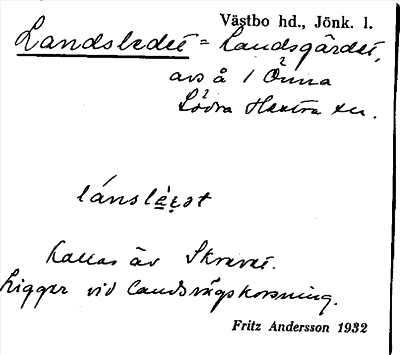 Västbo hd., Jönk. l.
Landsledet = Landsgärdet,
avs å 1 Önna
Södra Hestra sn.
lánslèṛət
Kallas äv Skravet.
Ligger vid landsvägskorsning.
Fritz Andersson 1932